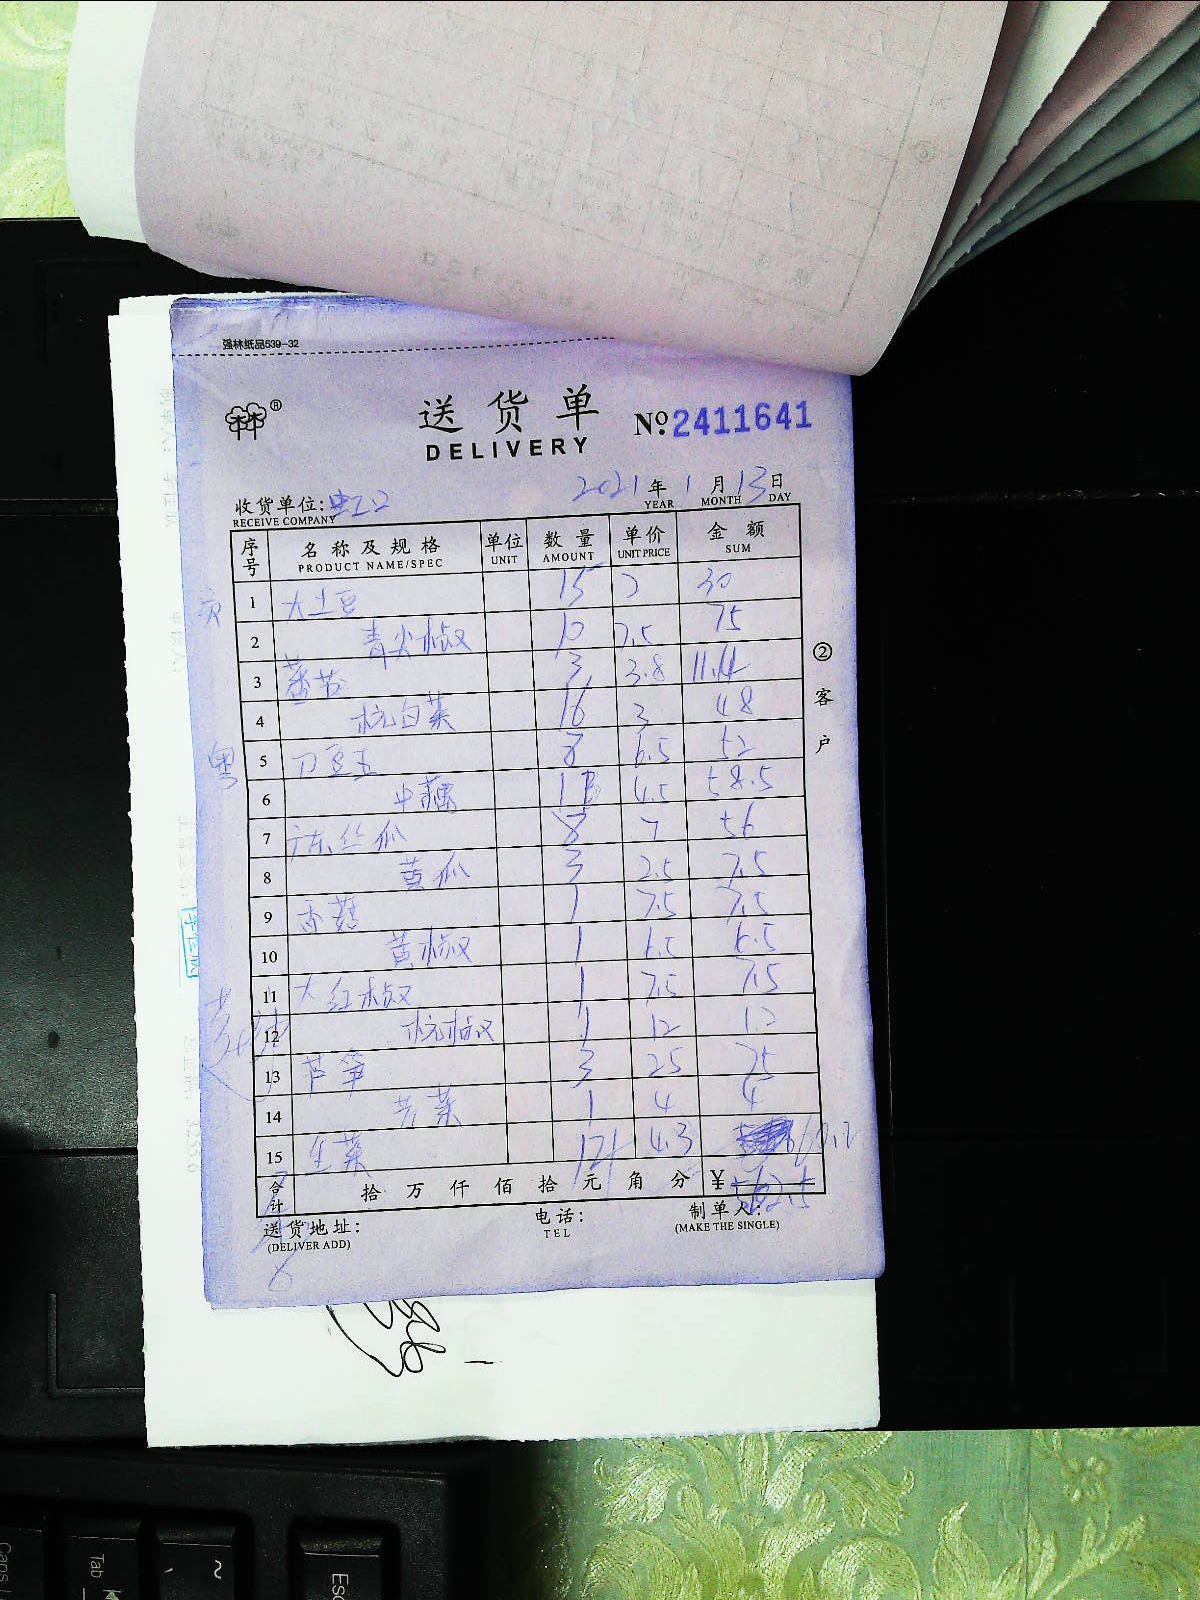 强林纸品539-32
送货单
DELIVERY
№ 2411641
收货单位: 虹2
RECEIVE COMPANY
2021 年 1 月 13 日
YEAR MONTH DAY
序号 名称及规格 单位 数量 单价 金额
PRODUCT NAME/SPEC UNIT AMOUNT UNIT PRICE SUM
1 大土豆 15 2 30
2 青尖椒 10 7.5 75
3 蕃茄 3 3.8 11.4
4 杭白菜 16 3 48
5 刀豆王 8 6.5 52
6 中藕 13 4.5 58.5
7 广东丝瓜 8 7 56
8 黄瓜 3 2.5 7.5
9 香菇 1 7.5 7.5
10 黄椒 1 6.5 6.5
11 大红椒 1 7.5 7.5
12 杭椒 1 12 12
13 芦笋 3 25 75
14 芹菜 1 4 4
15 生菜 4.3
合计 拾 万 仟 佰 拾 元 角 分 ¥
送货地址: 电话: 制单人:
(DELIVER ADD) TEL (MAKE THE SINGLE)
②客户
粤
Caps
Tab
~
Esc